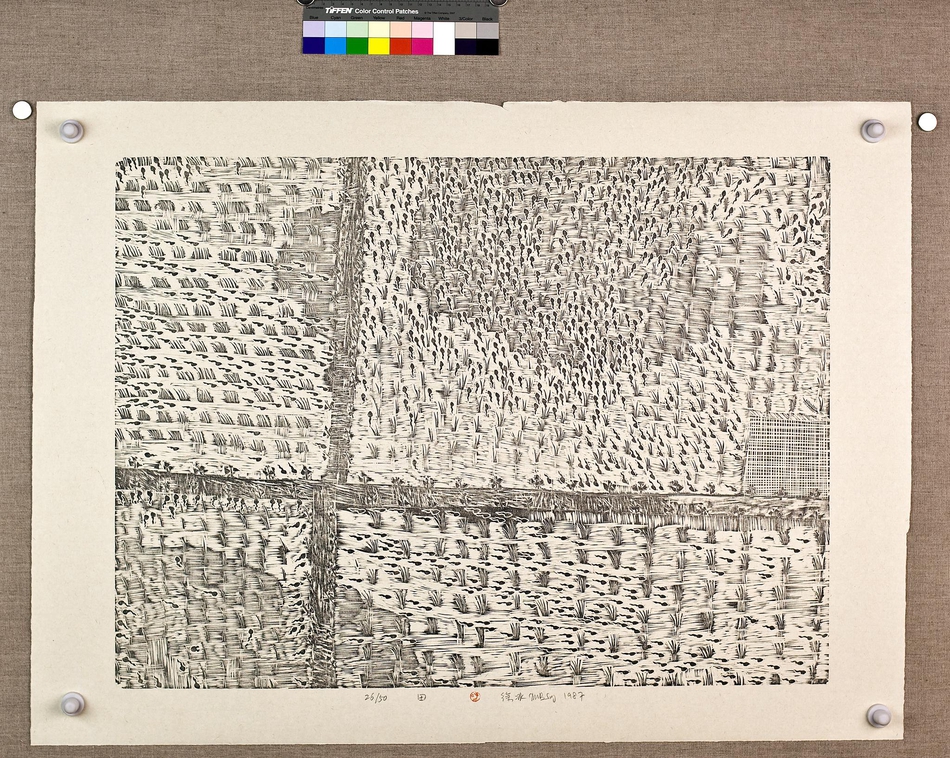 TIFFEN Color Control Patches
Blue Cyan Green Yellow Red Magenta White 3/Color Black
25/50 田 徐冰 1987